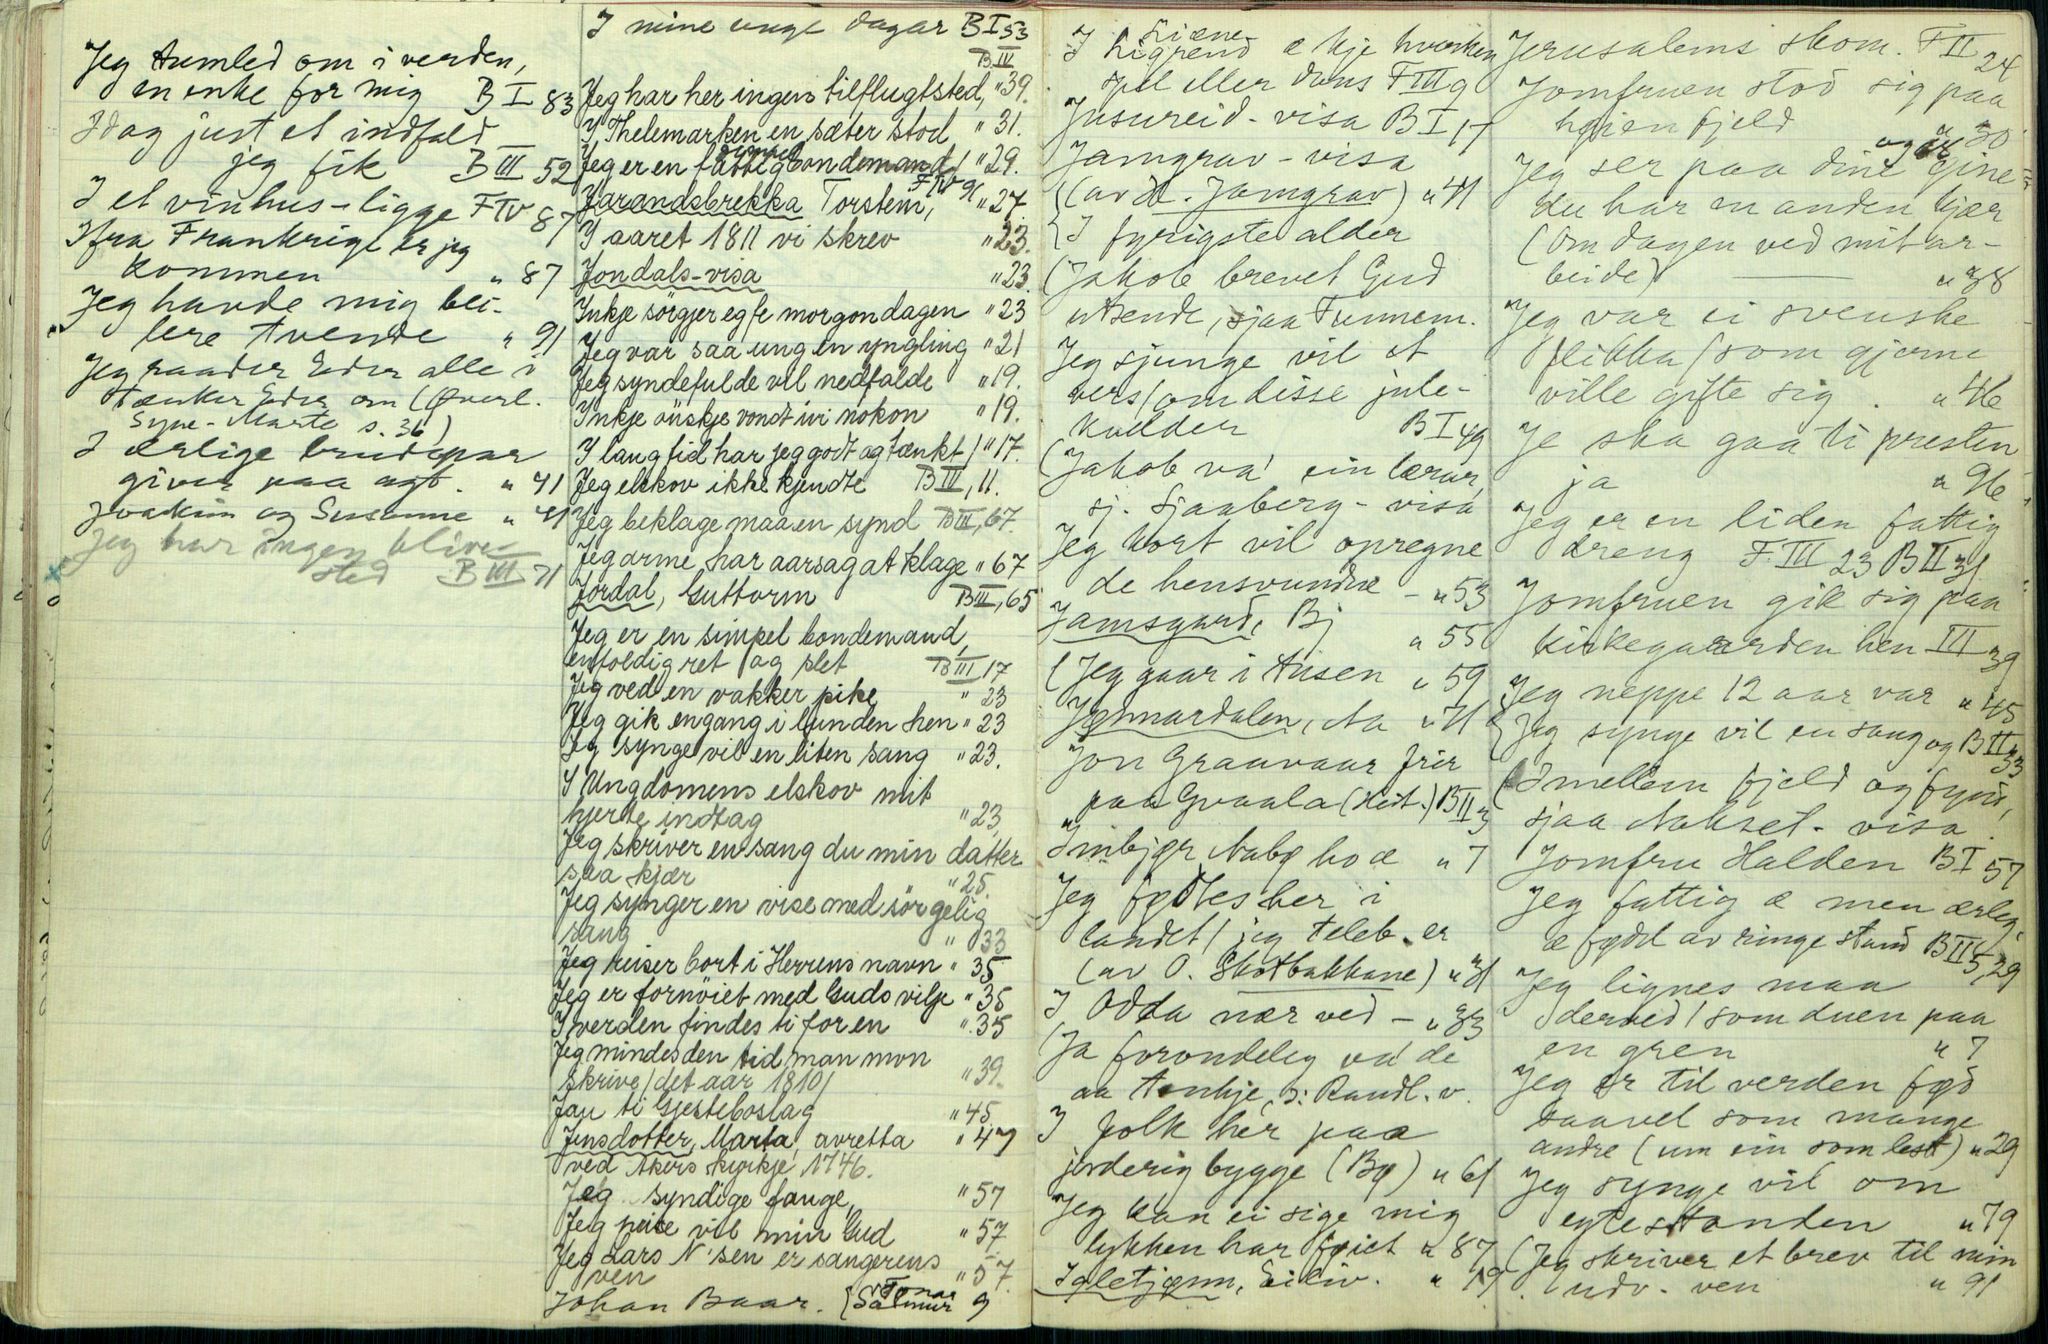 Jeg tumled om i verden,
en enke for mig B I 83
Idag just et indfald
jeg fik B III 52
I et vinhus-ligge F IV 87
Ifra Frankrige er jeg
kommen " 87
Jeg havde mig bei-
lere tvende " 91
Jeg raader Eder alle i
tænker Eder om (Øverl.
Syne-Marte s. 36)
I ærlige brudepar
giver paa agt. " 41
Joakim og Susanne " 41
Jeg har ingen blive-
sted B III 71
I mine unge dagar B I 53
B IV
Jeg har her ingen tilflugtsted, " 39.
I Thelemarken en sæter stod " 31.
simpel
Jeg er en fattig bondemand / " 29.
F IV 91
Jarandsbrekka Torstein, " 27
I aaret 1811 vi skrev " 23.
Jondals-visa " 23.
Inkje sörgjer eg fe morgondagen " 23
Jeg var saa ung en yngling " 21
Jeg syndefulde vil nedfalde " 19.
Inkje önskje vondt ivi nokon " 19.
I lang tid har jeg godt agtænkt / " 17.
Jeg elskov ikke kjendte B III, 11.
Jeg beklage maa en synd B III, 67.
Jeg arme har aarsag at klage " 67
Jordal, Guttorm B III, 65
Jeg er en simpel bondemand,
enfoldig ret og slet B III 17
Jeg ved en vakker pike " 23
Jeg gik engang i lunden hen " 23
Jeg synge vil en liten sang " 23.
I Ungdomens elskov mit
hjerte indtag " 23
Jeg skriver en sang du min datter
saa kjær " 25
Jeg synger en vise med sörgelig
sang " 33
Jeg reiser bort i Herrens navn " 35
Jeg er fornöiet med Guds vilje " 35
I verden findes ti for en " 35
Jeg mindes den tid man mon
skrive / det aar 1810 / " 39.
Jau ti Gjesteboslag " 45
Jensdotter, Marta, avretta " 47
ved Akers kyrkje 1746.
Jeg syndige fange, " 57
Jeg prise vil min Gud " 57
Jeg Lars N'sen er sangerens
ven " 57.
Johan Baar. {Tonar Salmur 9
Liene
I Ligrend æ kje hvorken
spel eller dans F III 9
Jusureid-visa B I 17
Jamgrav-visa
(av H. Jamgrav) " 41
{I fyrigste alder
(Jakob brevet Gud
utsende, sjaa Funnem.
Jeg sjunge vil et
vers / om disse jule-
kvelder B I 49
(Jakob va' ein lærar,
sj. Sjaaberg-visa
Jeg kort vil opregne
de hensvundne - " 53
Jamsgard, Bj " 55
(Jeg gaar i tusen " 59
Jønnardalen, Na " 71
Jon Graavaar frir
paa Gvaala (Heit.) B II 3
Innbjør Nabø ho æ " 7
Jeg fødtes her i
landet / jeg teleb. er
(av O. Skotbakkane) " 21
I Odda nær ved - " 83
(Ja forondeleg va de
aa tenkje, s: Raudl. v.
I folk her paa
jorderig bygge (Bø) " 61
Jeg kan ei sige mig
lykken har føiet " 87
Igletjønn, Eiliv. " 19
Jerusalems skom. F II 24
Jomfruen stod sig paa
høien fjeld " 30
Jeg ser paa dine øine
du har en anden kjær
(Om dagen ved mit ar-
beide) " 38
Jeg var ei svenske
flikka / som gjerne
ville gifte sig. " 46
Je ska gaa ti presten
ja " 96
Jeg er en liden fattig
dreng F. III 23 B II 31
Jomfruen gik sig paa
kirkegaarden hen III 39
Jeg neppe 12 aar var " 45
{Jeg synge vil en sang og B II 33
(Imellem fjeld og fyrir,
sjaa Nakset-visa.
Jomfru Halden B I 57
Jeg fattig æ men ærleg,
æ fødd av ringe stand B II 5, 29
Jeg lignes maa
derved / som duen paa
en gren " 7
Jeg er til verden fød
saavel som mange
andre (um ein som lest) " 29
Jeg synge vil om
egtestanden " 79
(Jeg skriver et brev til min
udv. ven " 91